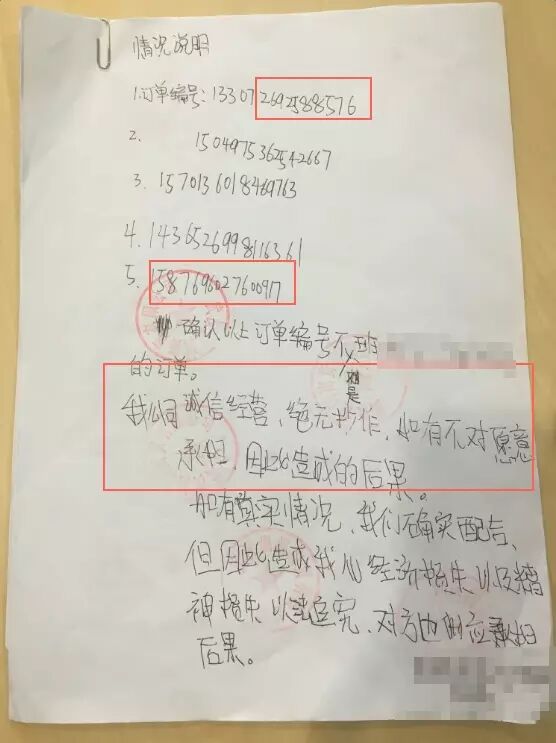 情况说明
1.订单编号:133072692588576
2. 1504975362542667
3. 1570136018469763
4. 1436526998116361
5. 1587696027600917
确认以上订单编号不
是
的订单。
我公司诚信经营,绝无炒作,如有不对愿意
承担,因此造成的后果。
如有真实情况,我们确实配合,
但因此造成我们经济损失以及精
神损失以法追究,对方也侧应承担
后果。